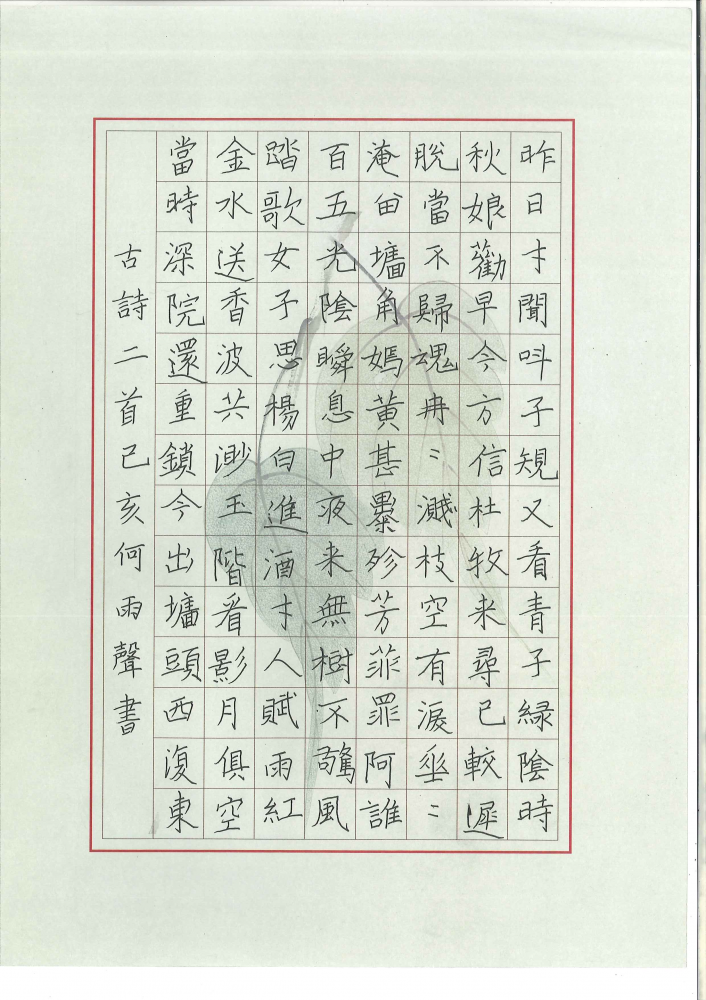 昨日才聞叫子規又看青子緑陰時
秋娘勸早今方信杜牧来尋已較遲
脫當不歸魂冉〻濺枝空有淚垂〻
淹留墻角嫣黃甚爨殄芳菲罪阿誰
百五光陰瞬息中夜来無樹不驚風
踏歌女子思楊白進酒才人賦雨紅
金水送香波共渺玉階看影月俱空
當時深院還重鎖今出墻頭西復東
古詩二首己亥何雨聲書